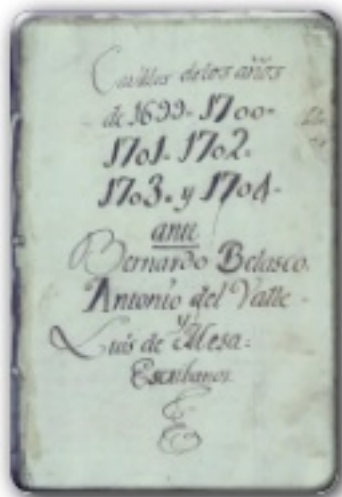 Casillas de los años
de 1699- 1700-
1701- 1702-
1703. y 1704-
ante
Bernardo Belasco.
Antonio del Valle-
y
Luis de Mesa:
Escribanos